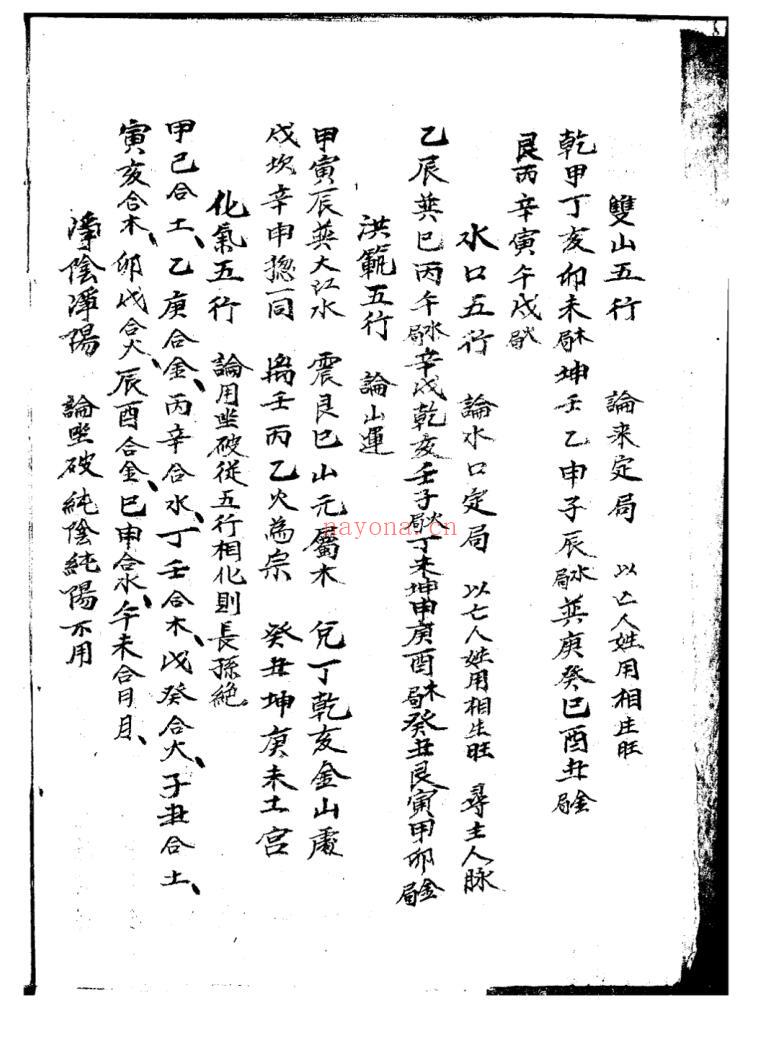 雙山五行　論来定局　以亡人姓用相生旺
乾甲丁亥卯未木局坤壬乙申子辰水局巽庚癸巳酉丑金局
艮丙辛寅午戌火局
水口五行　論水口定局　以亡人姓用相生旺　尋主人脉
乙辰巽巳丙午水局辛戌乾亥壬子火局丁未坤申庚酉木局癸丑艮寅甲卯金局
洪範五行　論山運
甲寅辰巽大江水　震艮巳山元屬木　兌丁乾亥金山處
戌坎辛申揔一同　离壬丙乙火為宗　癸丑坤庚未土宮
化氣五行　論用坐破從五行相化則長孫絶。
甲己合土、乙庚合金、丙辛合水、丁壬合木、戊癸合火、子丑合土、
寅亥合木、卯戌合火、辰酉合金、巳申合水、午未合日月、
淨陰淨陽　論坐破純陰純陽不用
nayona.cn